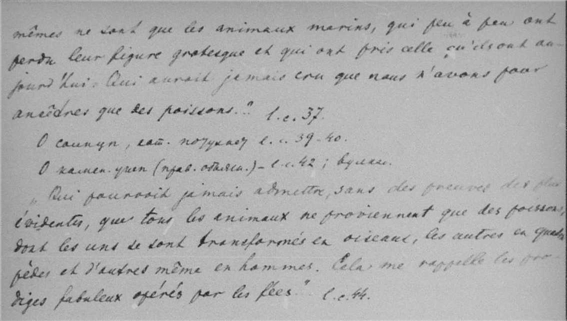 mêmes ne sont que les animaux marins, qui peu à peu ont
perdu leur figure grotesque et qui ont pris celle qu'ils ont au-
jourd'hui. Qui aurait jamais cru que nous n'avons pour
ancêtres que des poissons..." l.c. 37.
О l.c. 39-40.
О камен. l.c. 42;
„Qui pourroit jamais admettre, sans des preuves des plus
évidentes, que tous les animaux ne proviennent que des poissons,
dont les uns se sont transformés en oiseaux, les autres en quadru-
pèdes et d'autres même en hommes. Cela me rappelle les pro-
diges fabuleux opérés par les fées." l.c. 44.